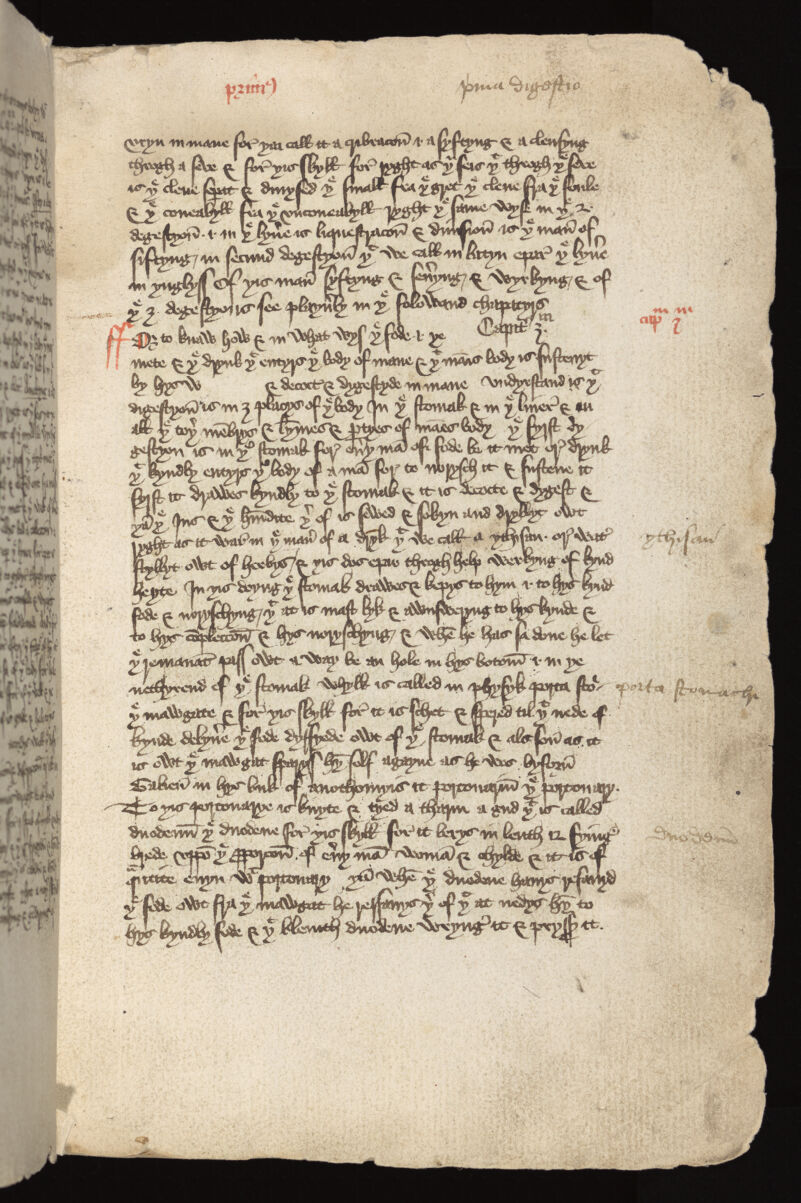 primus prima digestio
vryn in mane for yai call it a cribracon & a syftyng & a clensyng
throgh a seve & for yis skyll for ryght as yͤ seis yͭ throgh yͤ seve
is yͤ clene spit & dyuysed yͤ small fra yͤ gret yͤ clene fra yͤ foule
& yͤ couenabyll fra yͤ vnconenabyll ryght yͤ same wyse in yͤ 2
degestyon & in yͤ lyuer is liquestracon & diuision is yͤ maner of
siftyng / in secund degestyon yͭ we call in latyn epar yͤ lyuer
in ynglyss Of yis maner syftyng & seueryng / & wyrkyng / & of
yͤ 3 degestyon is see playnly in yͤ folowand chapitrys
For to knaw how & in what wys yͤ fode & ye Capitm 3m
mete & yͤ drynk yͭ entyrs yͤ body of mane & yͭ mans body is sustenyt
by hys w & decoct & dygestyde in mane vndyrstand is yͭ
digestyon is in 3 placys of yͤ body In yͤ stomak & in yͤ liuer & in
all yͤ toyr membrys & lymes & partyes of maes body yͤ fyrst dy
gestyon is in yͤ stomak for euery maner of fode be it met or drynk
yͭ kyndly entyrs yͤ body of a man for to norysch it & sustene it
fyrst it drawes kyndly to yͤ stomak & it is decocte & dygest &
yan yͤ Ius & yͤ humdite yr of is sewed & sokyn and dryllyt owt
ryght as it war in yͤ maner of a drynk yͭ we call a ythisan or water
styllyt owt of herbys / & yis dos epar throgh help werkyng of kynd
heyte In yis doyng yͤ stomak drawes & kepys to hym & to hys kynd
fode & noryschyng / yͭ at is mast lyk & awnsweryng to hys kynde &
to hys complexcon & hys noryschyng / & when he has sa done he let
yͤ remanant pass owt a way be an hole in hys botom & in ye
nethyrend of yͤ stomak whylk is called in phisyk porta stomachi
yͤ mawgate & for yis skyll for it is schet & spered til yͭ nede of
kynde delyuer yͤ fode dyffyede owt of yͤ stomak & als son as it
is owt yͤ mawgat sparys hym self agayne as he was byforn
Galien in hys buk of anothomyis it portonarium yͤ portonary.
To yis portonarye is knyte & tyed a tharm a gud yͭ is called
duodenum yͤ duodene for yis skyll for it berys in lenth 12 fynger
brede vppon yͤ proporcon of euery man woman & chylde & it is of
qntite euyn wt portonary yan when yͤ duodene hauys resauyd
yͤ fode owt fra yͤ mawgat he ressauys yr of yͭ at nedys hym to
hys kyndly fode & yͤ kleuith duodene wryng it & prysses it.
capm 3m
ythisan
porta stomachi
duodenum